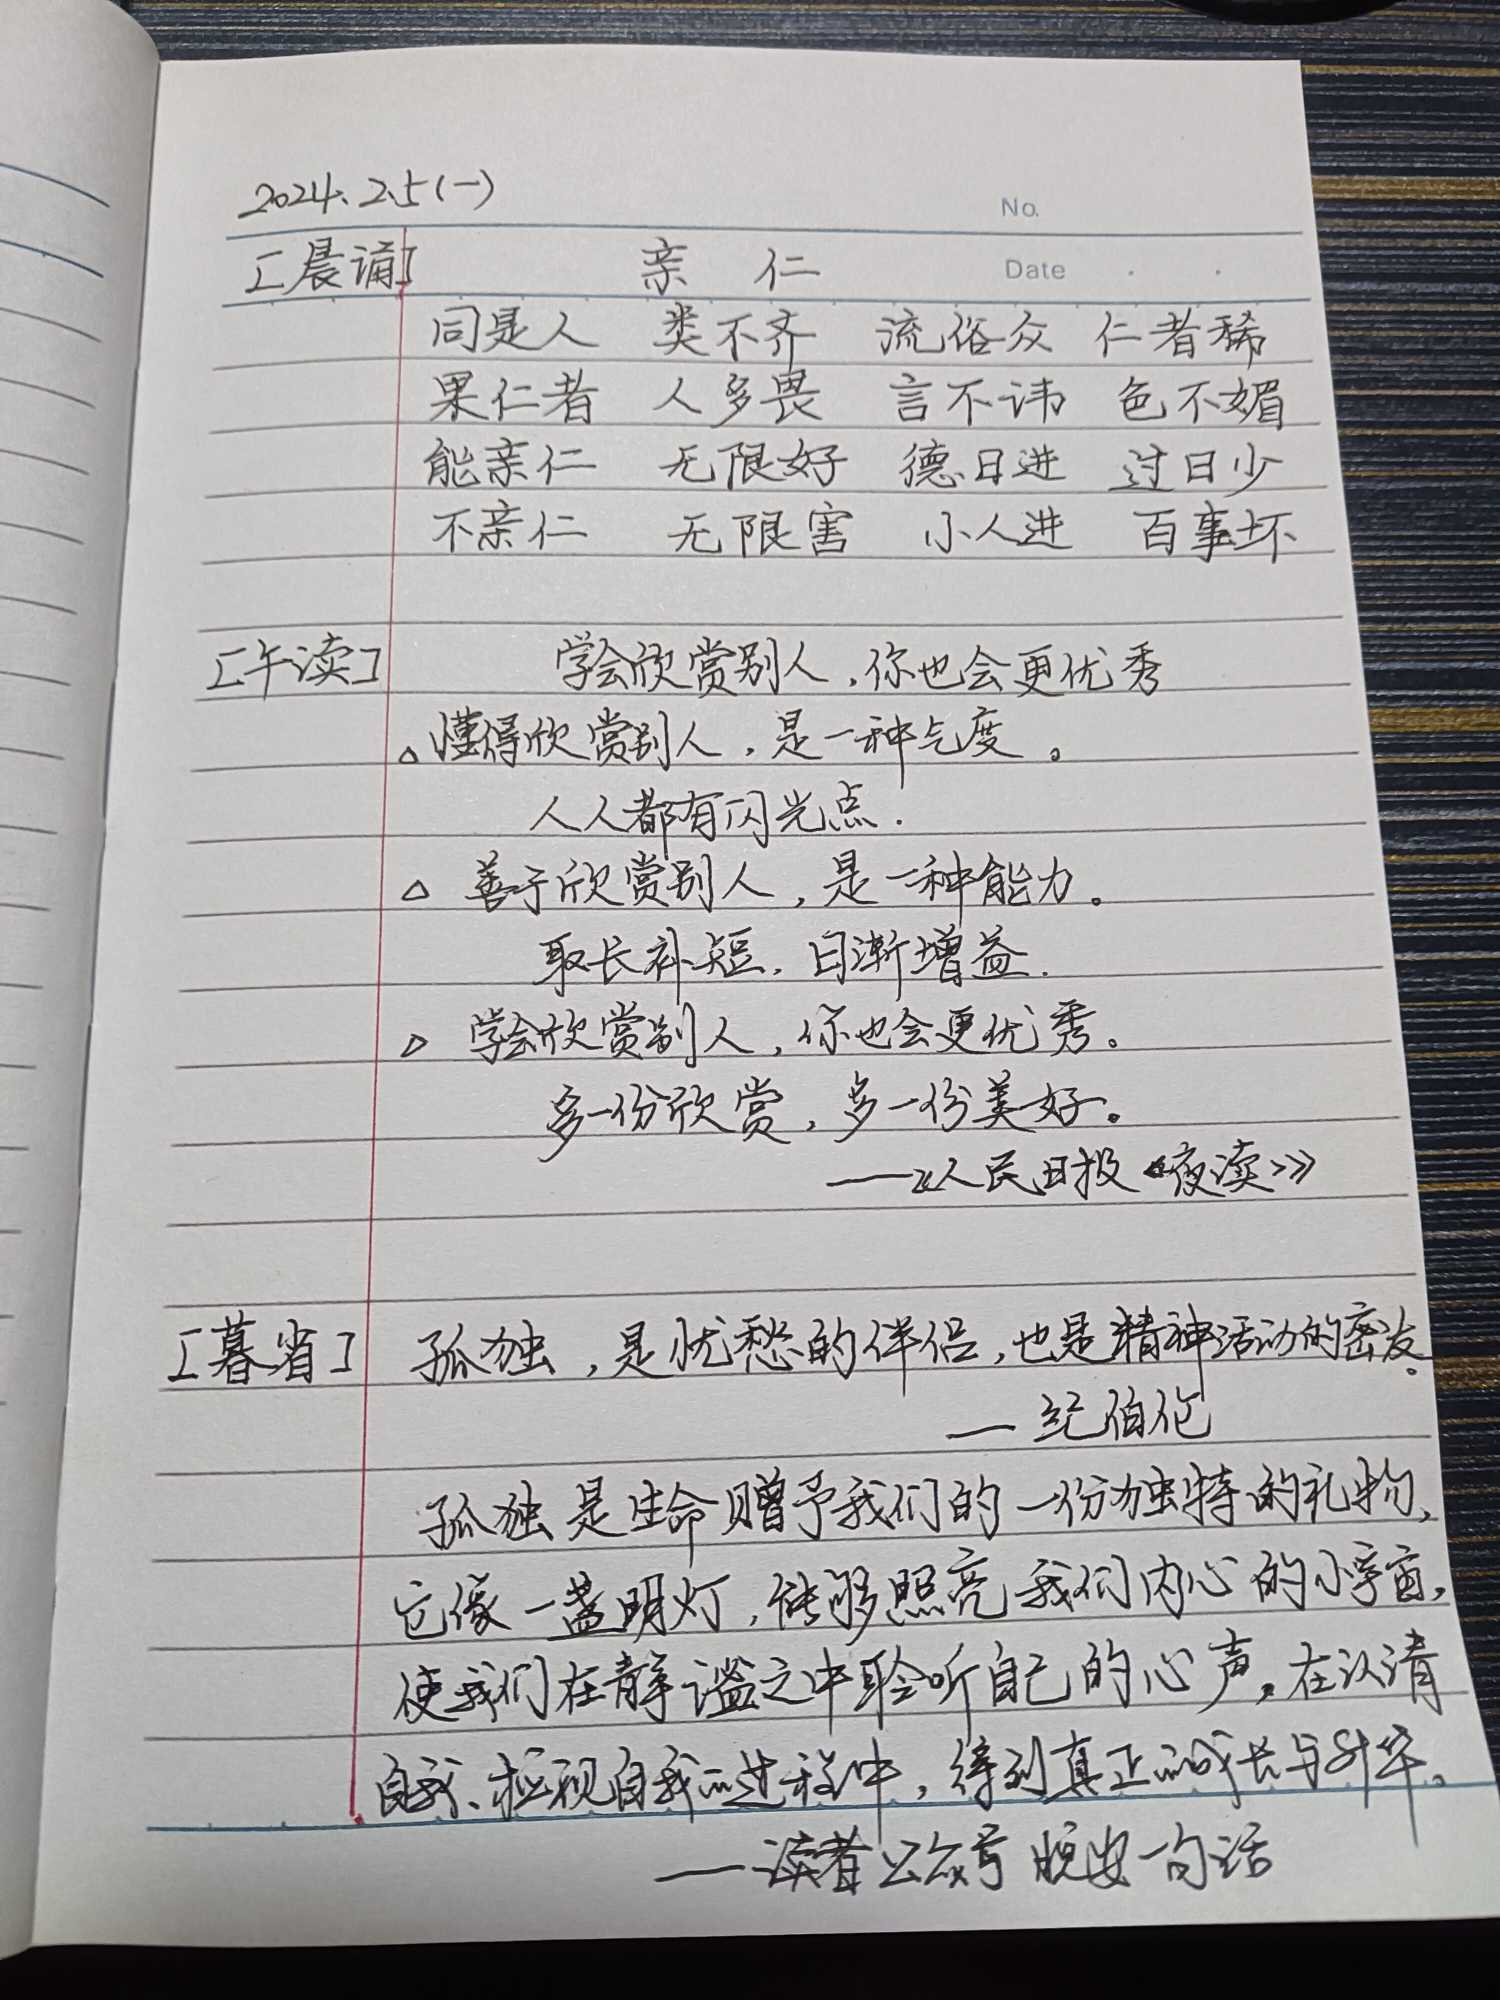 2024.2.5(一)
No.
[晨诵] 亲 仁
Date
同是人 类不齐 流俗众 仁者稀
果仁者 人多畏 言不讳 色不媚
能亲仁 无限好 德日进 过日少
不亲仁 无限害 小人进 百事坏
[午读] 学会欣赏别人,你也会更优秀
△懂得欣赏别人,是一种气度。
人人都有闪光点.
△ 善于欣赏别人,是一种能力。
取长补短,日渐增益.
△ 学会欣赏别人,你也会更优秀。
多一份欣赏,多一份美好。
——《人民日报《夜读》》
[暮省] 孤独,是忧愁的伴侣,也是精神活动的密友。
— 纪伯伦
孤独是生命赠予我们的一份独特的礼物,
它像一盏明灯,能够照亮我们内心的小宇宙,
使我们在静谧之中聆听自己的心声。在认清
自我、检视自我的过程中,得到真正的成长与升华。
——读者公众号 晚安一句话